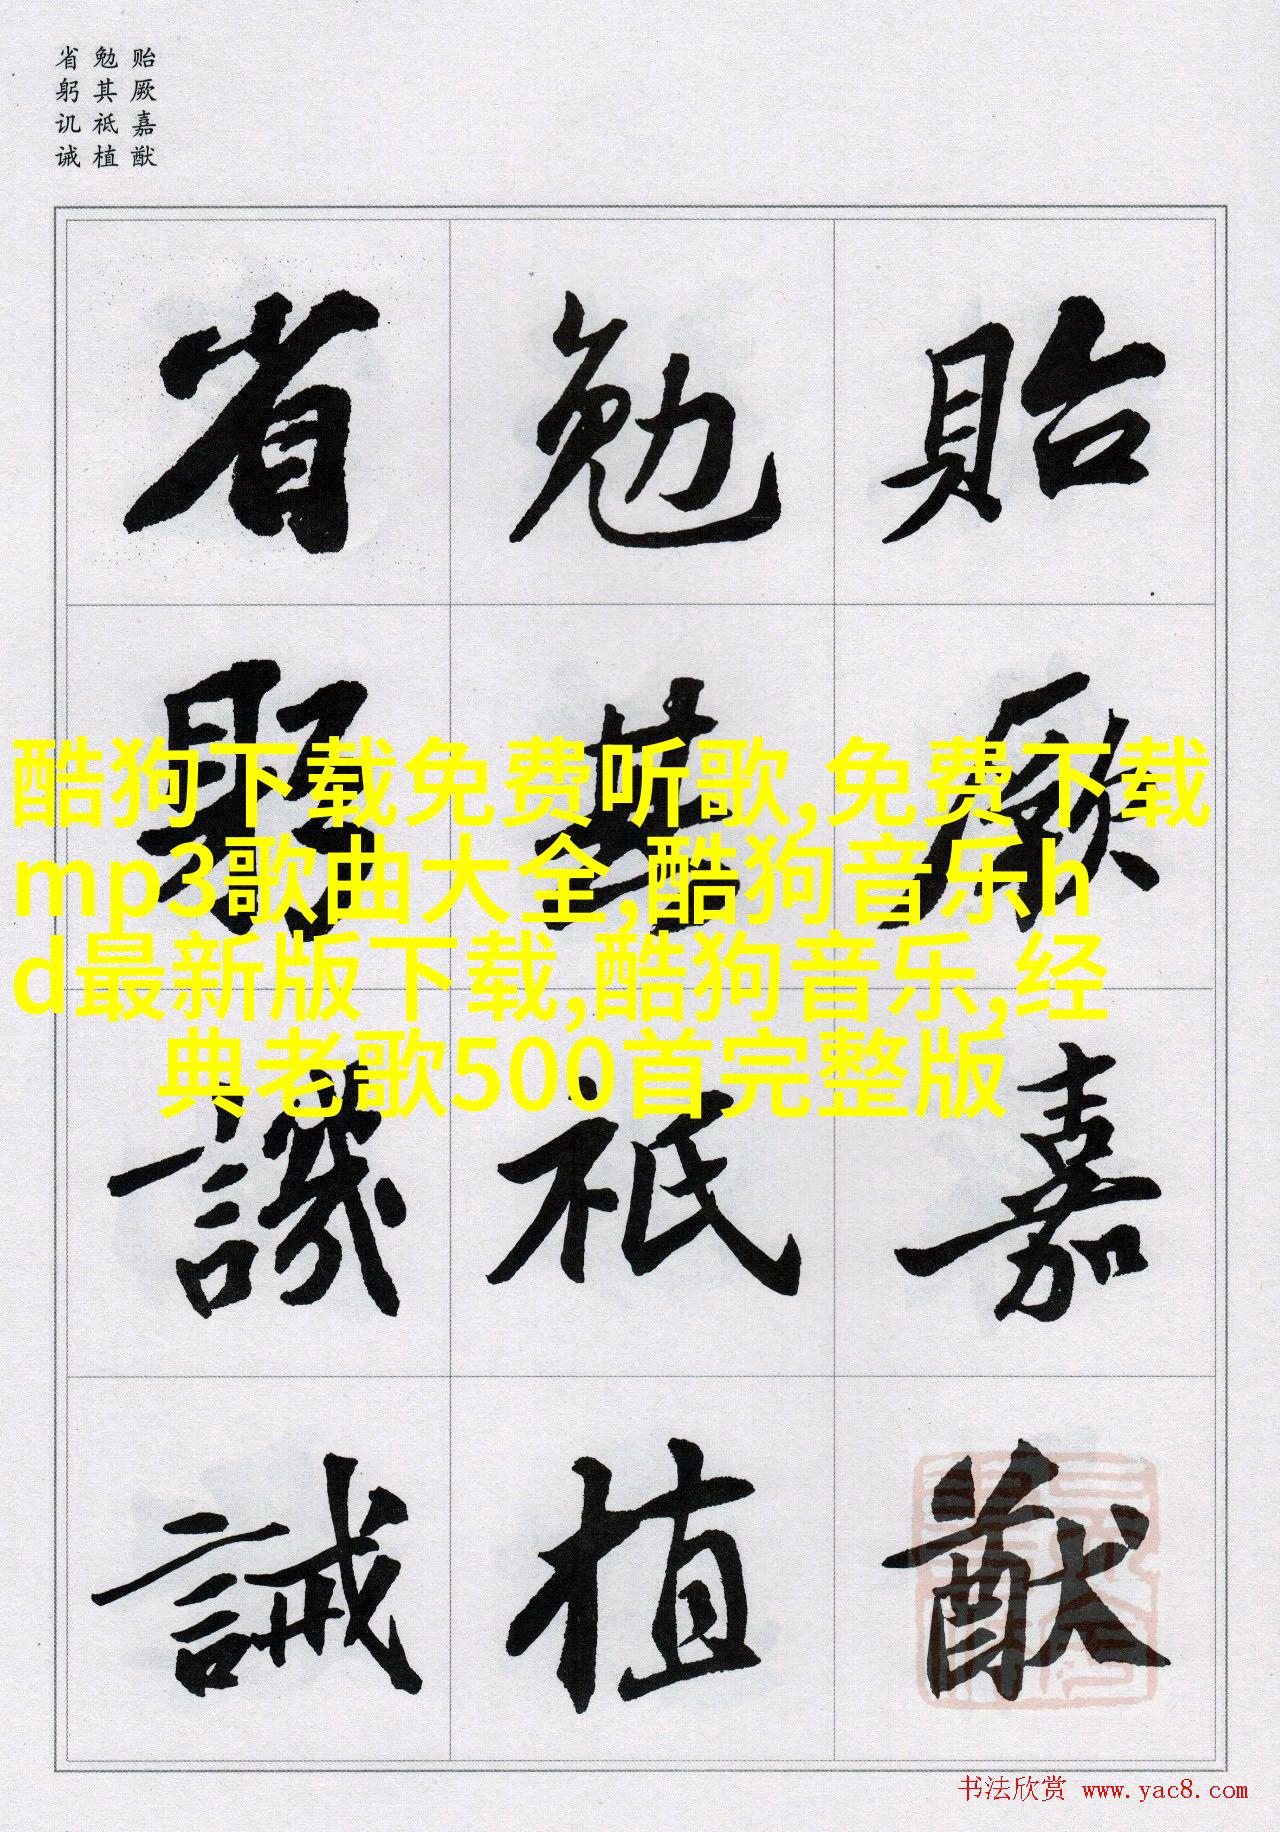 贻厥嘉猷
勉其祗植
省躬讥诫
貽厥嘉猷
勉其祗植
省躬譏誡
酷狗下载免费听歌,免费下载
mp3歌曲大全,酷狗音乐h
d最新版下载,酷狗音乐,经
典老歌500首完整版
书法欣赏 www.yac8.com